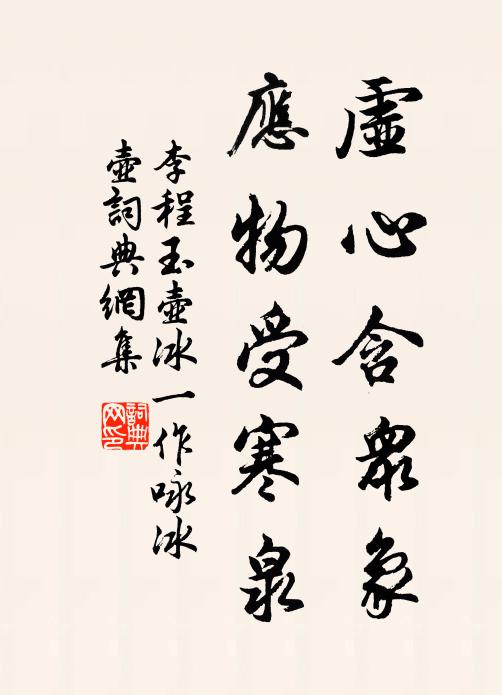 虛心含衆象
應物受寒泉
李程玉壺冰一作咏冰
壺詞典網集
詞典
网印